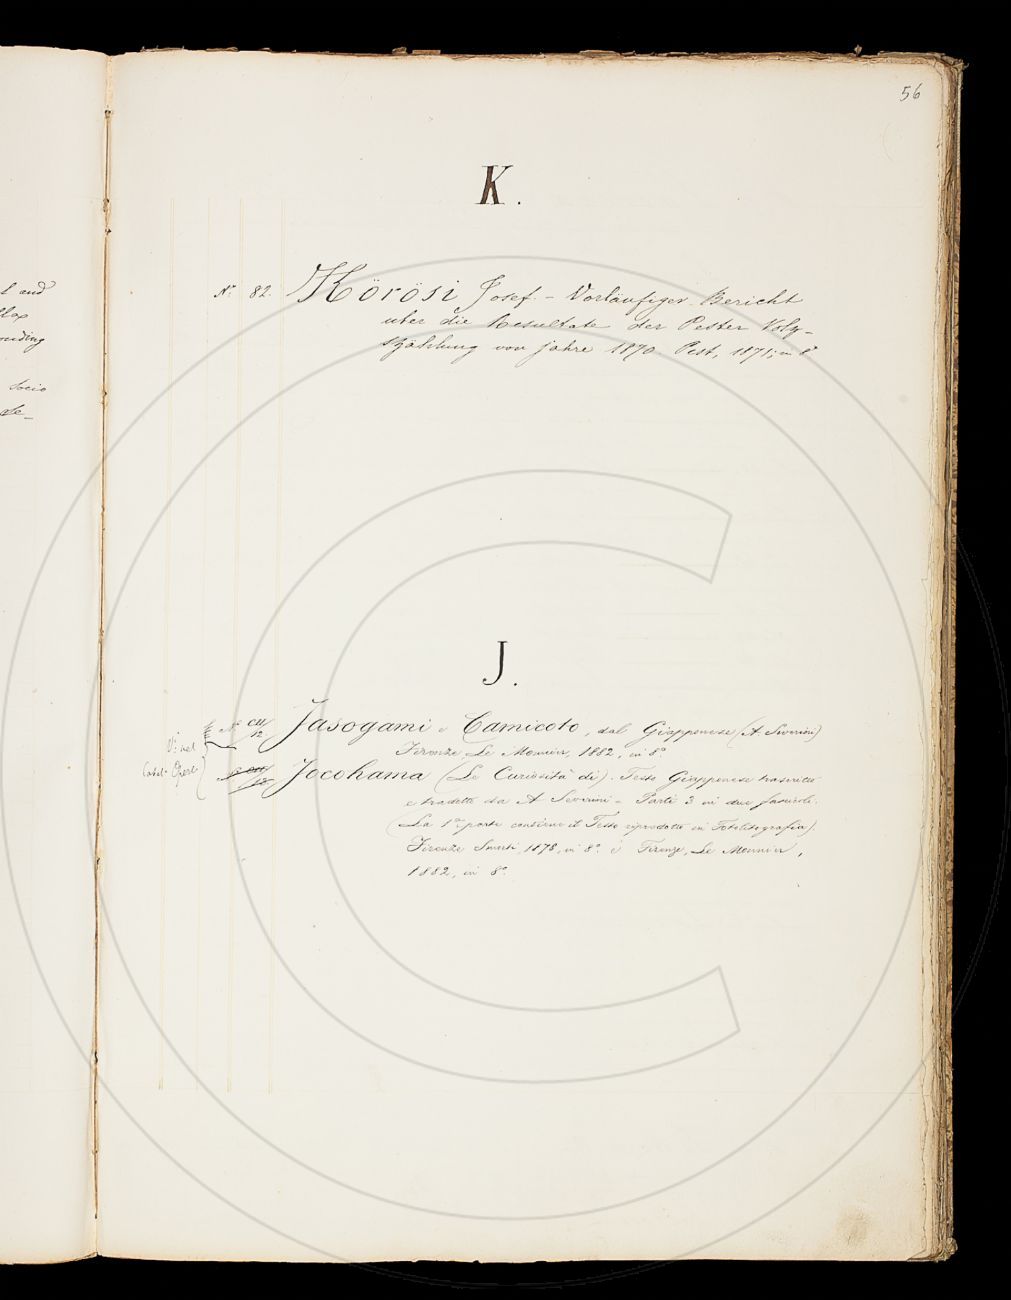 56
K.
l and
Nº 82. Körösi Josef. - Vorläufiger Bericht
uber die Resultate der Pester Volg-
szählung von Jahre 1870. Pest, 1871; in 8º
Socio
J.
Nº CII/12. Jasogami e Camicoto, dal Giapponese (A. Severini)
Firenze, Le Monnier, 1882, in 8º.
V: nel
Catal. Oper.
Jocohama (Le Curiosità di). Testo Giapponese trascritto
e tradotto da A Severini - Parti 3 in due fascicoli.
(La 1ª parte contiene il Testo riprodotto in Fotolitografia).
Firenze 1878, in 8º. e Firenze, Le Monnier,
1882, in 8º.